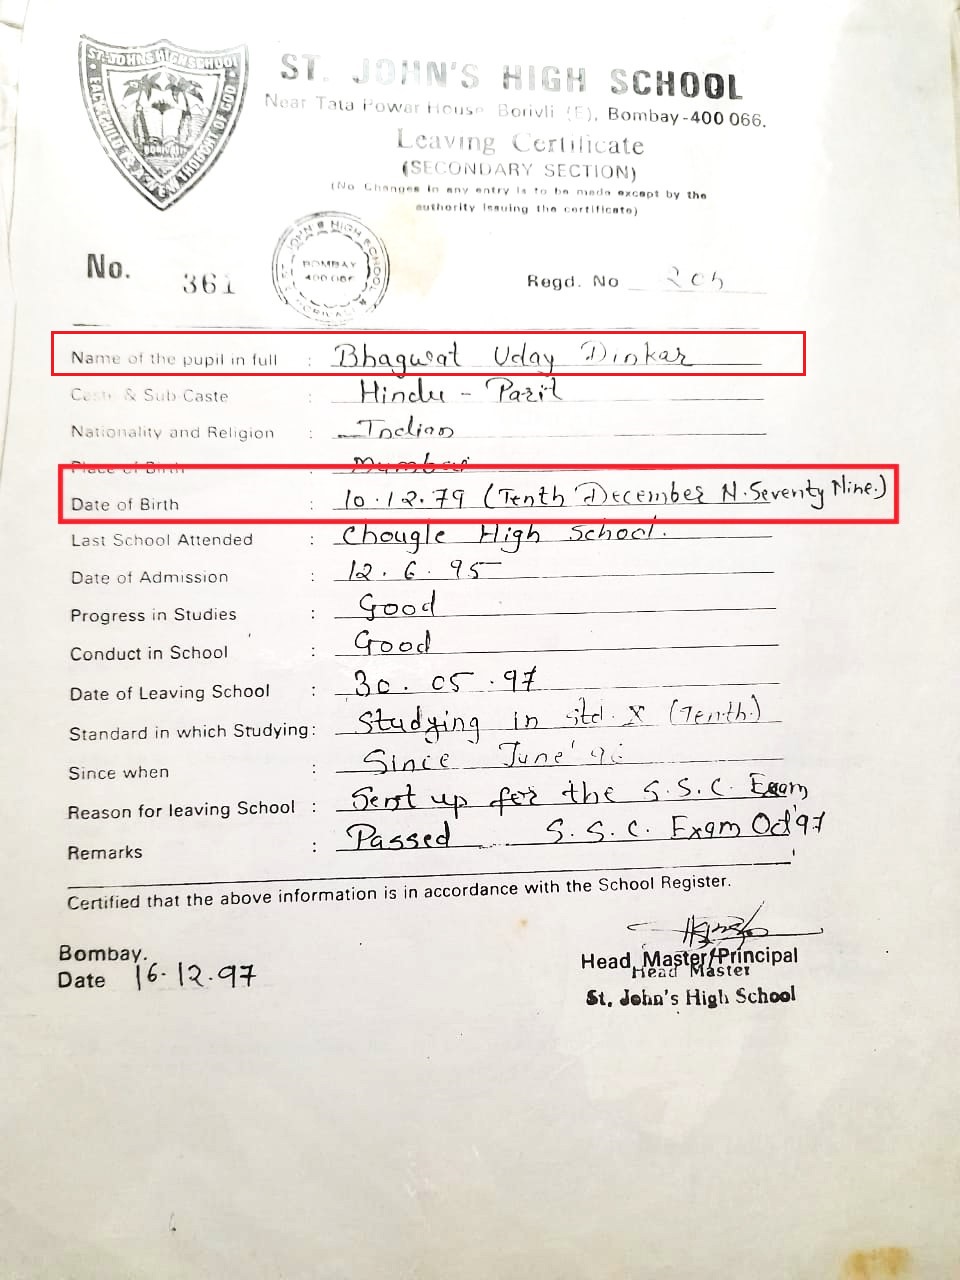 ST. JOHN'S HIGH SCHOOL
EACH CHILD IS A NEW THOUGHT OF GOD
ST. JOHN'S HIGH SCHOOL
Near Tata Power House Borivli (E), Bombay-400 066.
Leaving Certificate
(SECONDARY SECTION)
(No Changes in any entry is to be made except by the
authority issuing the certificate)
JOHN'S HIGH SCHOOL
BOMBAY
No. 361
Regd. No
Name of the pupil in full : Bhagwat Uday Dinkar
Caste & Sub-Caste : Hindu - Parit
Nationality and Religion : Indian
Place of Birth Mumbai
Date of Birth 10.12.79 (Tenth December N. Seventy Nine.)
Last School Attended : Chougle High School.
Date of Admission : 12.6.95
Progress in Studies : Good
Conduct in School : Good
Date of Leaving School : 30.05.97
Standard in which Studying: Studying in std. X (Tenth.)
Since when : Since June '96
Reason for leaving School : Sent up for the S.S.C. Exam
Remarks : Passed S.S.C. Exam Oct'97
Certified that the above information is in accordance with the School Register.
Bombay.
Date 16.12.97
Head Master/Principal
Head Master
St. John's High School